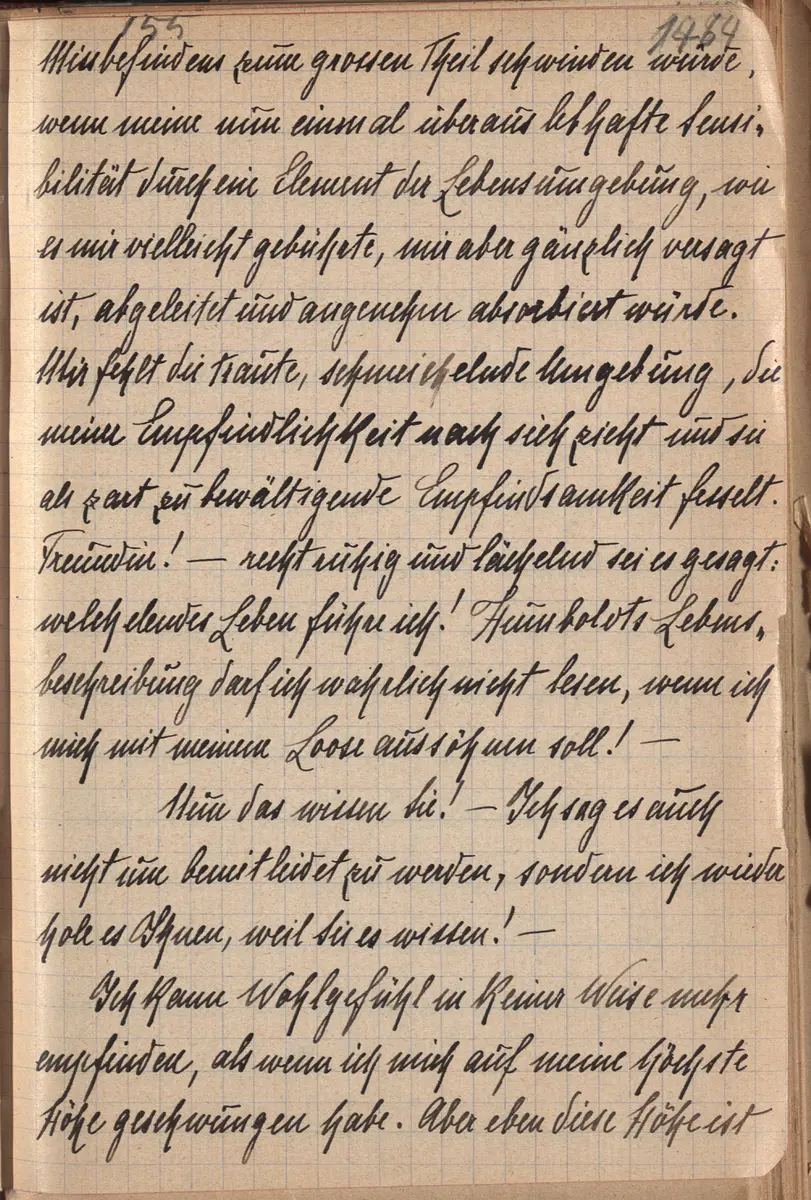 155 1484
Missbefindens zum grossen Theil schwinden würde,
wenn meine nun einmal überaus lebhafte Sensi-
bilität durch ein Element der Lebensumgebung, wie
es mir vielleicht gebührte, mir aber gänzlich versagt
ist, abgeleitet und angenehm absorbiert würde.
Mir fehlt die traute, schmeichelnde Umgebung, die
meine Empfindlichkeit nach sich zieht und sie
als zart zu bewältigende Empfindsamkeit fesselt.
Freundin! — recht ruhig und lächelnd sei es gesagt:
welch elendes Leben führe ich! Humboldts Lebens-
beschreibung darf ich wahrlich nicht lesen, wenn ich
mich mit meinem Loose aussöhnen soll! —
Nun das wissen Sie! — Ich sag es auch
nicht um bemitleidet zu werden, sondern ich wieder
hole es Ihnen, weil Sie es wissen! —
Ich kann Wohlgefühl in keiner Weise mehr
empfinden, als wenn ich mich auf meine höchste
Höhe geschwungen habe. Aber eben diese Höhe ist